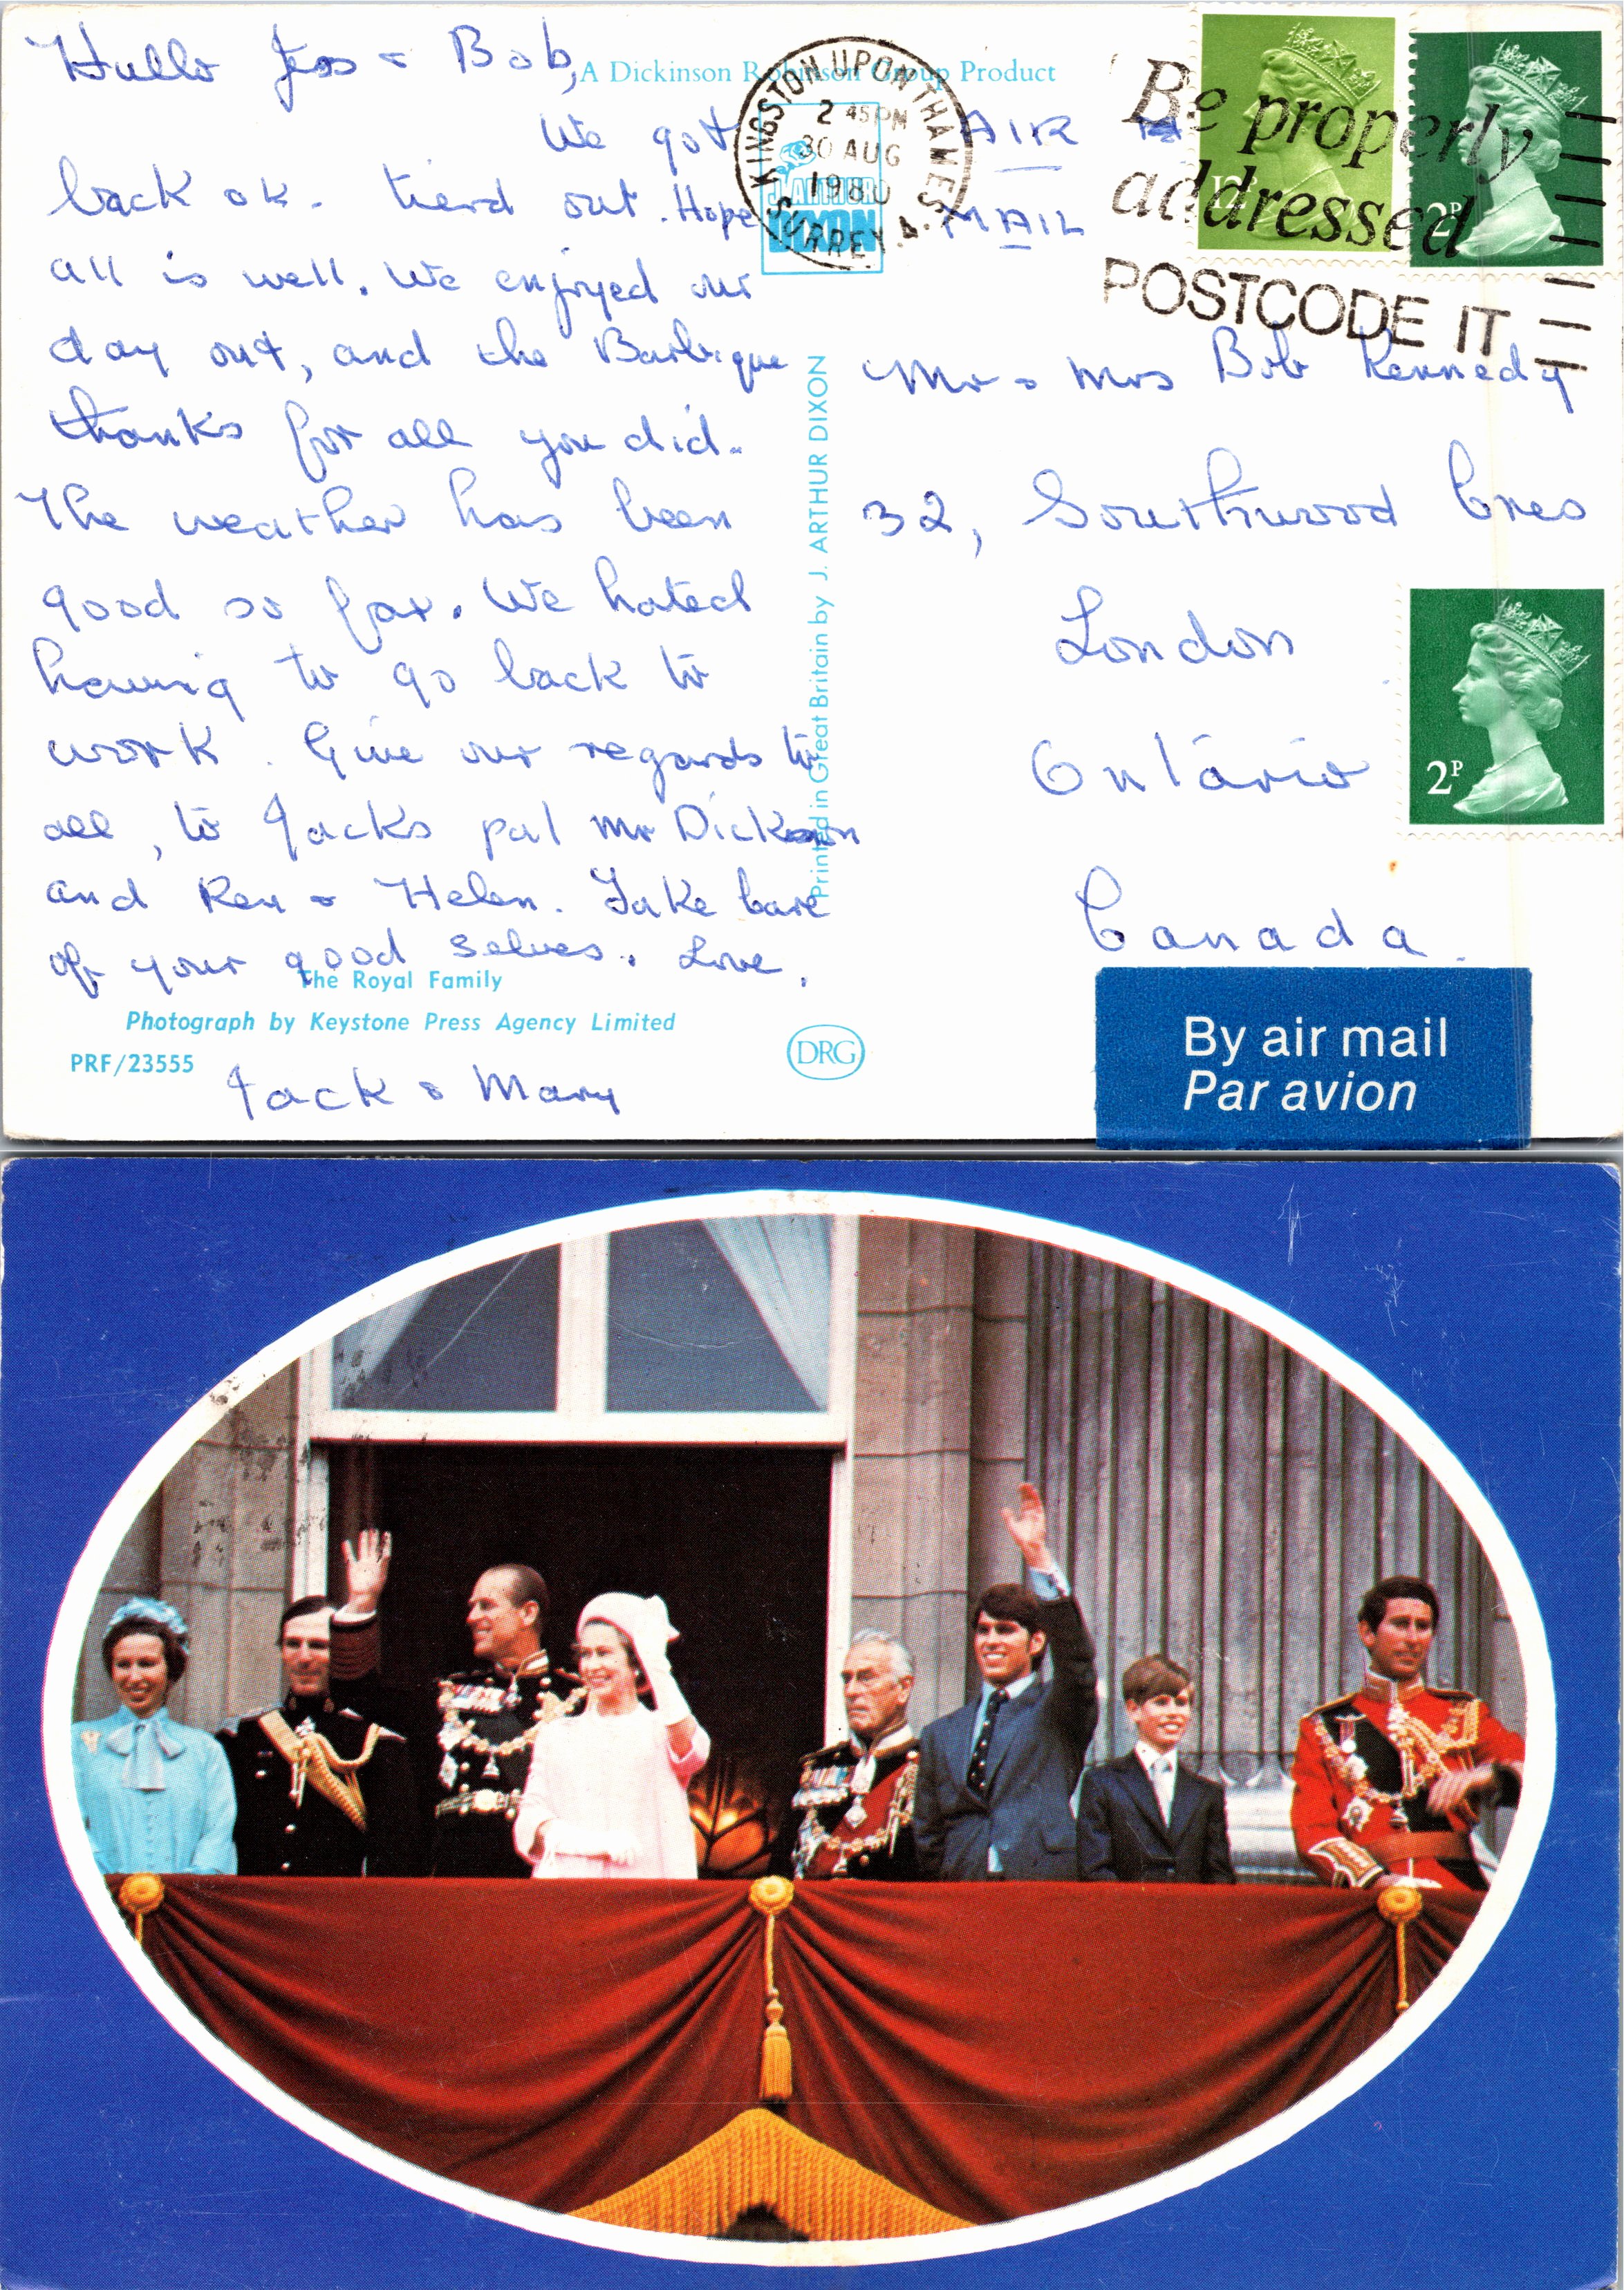 Hullo Jess & Bob,
A Dickinson Robinson Group Product
We got
back ok. tierd out. Hope
all is well. We enjoyed our
day out, and the Barbique
thanks for all you did.
The weather has been
good so far. We hated
having to go back to
work. Give our regards to
all, to Jacks pal Mr
and Rex & Helen. Take Care
of your good selves. Love,
The Royal Family
Photograph by Keystone Press Agency Limited
PRF/23555
Jack & Mary
Printed in Great Britain by J. ARTHUR DIXON
DRG
J. ARTHUR
DIXON
KINGSTON UPON THAMES
2 45PM
30 AUG
1980
SURREY. A.
AIR
MAIL
Be properly
addressed
POSTCODE IT
12P
2P
Mr & Mrs Bob Kennedy
32, Southwood Cres
London
Ontario
2P
Canada.
By air mail
Par avion